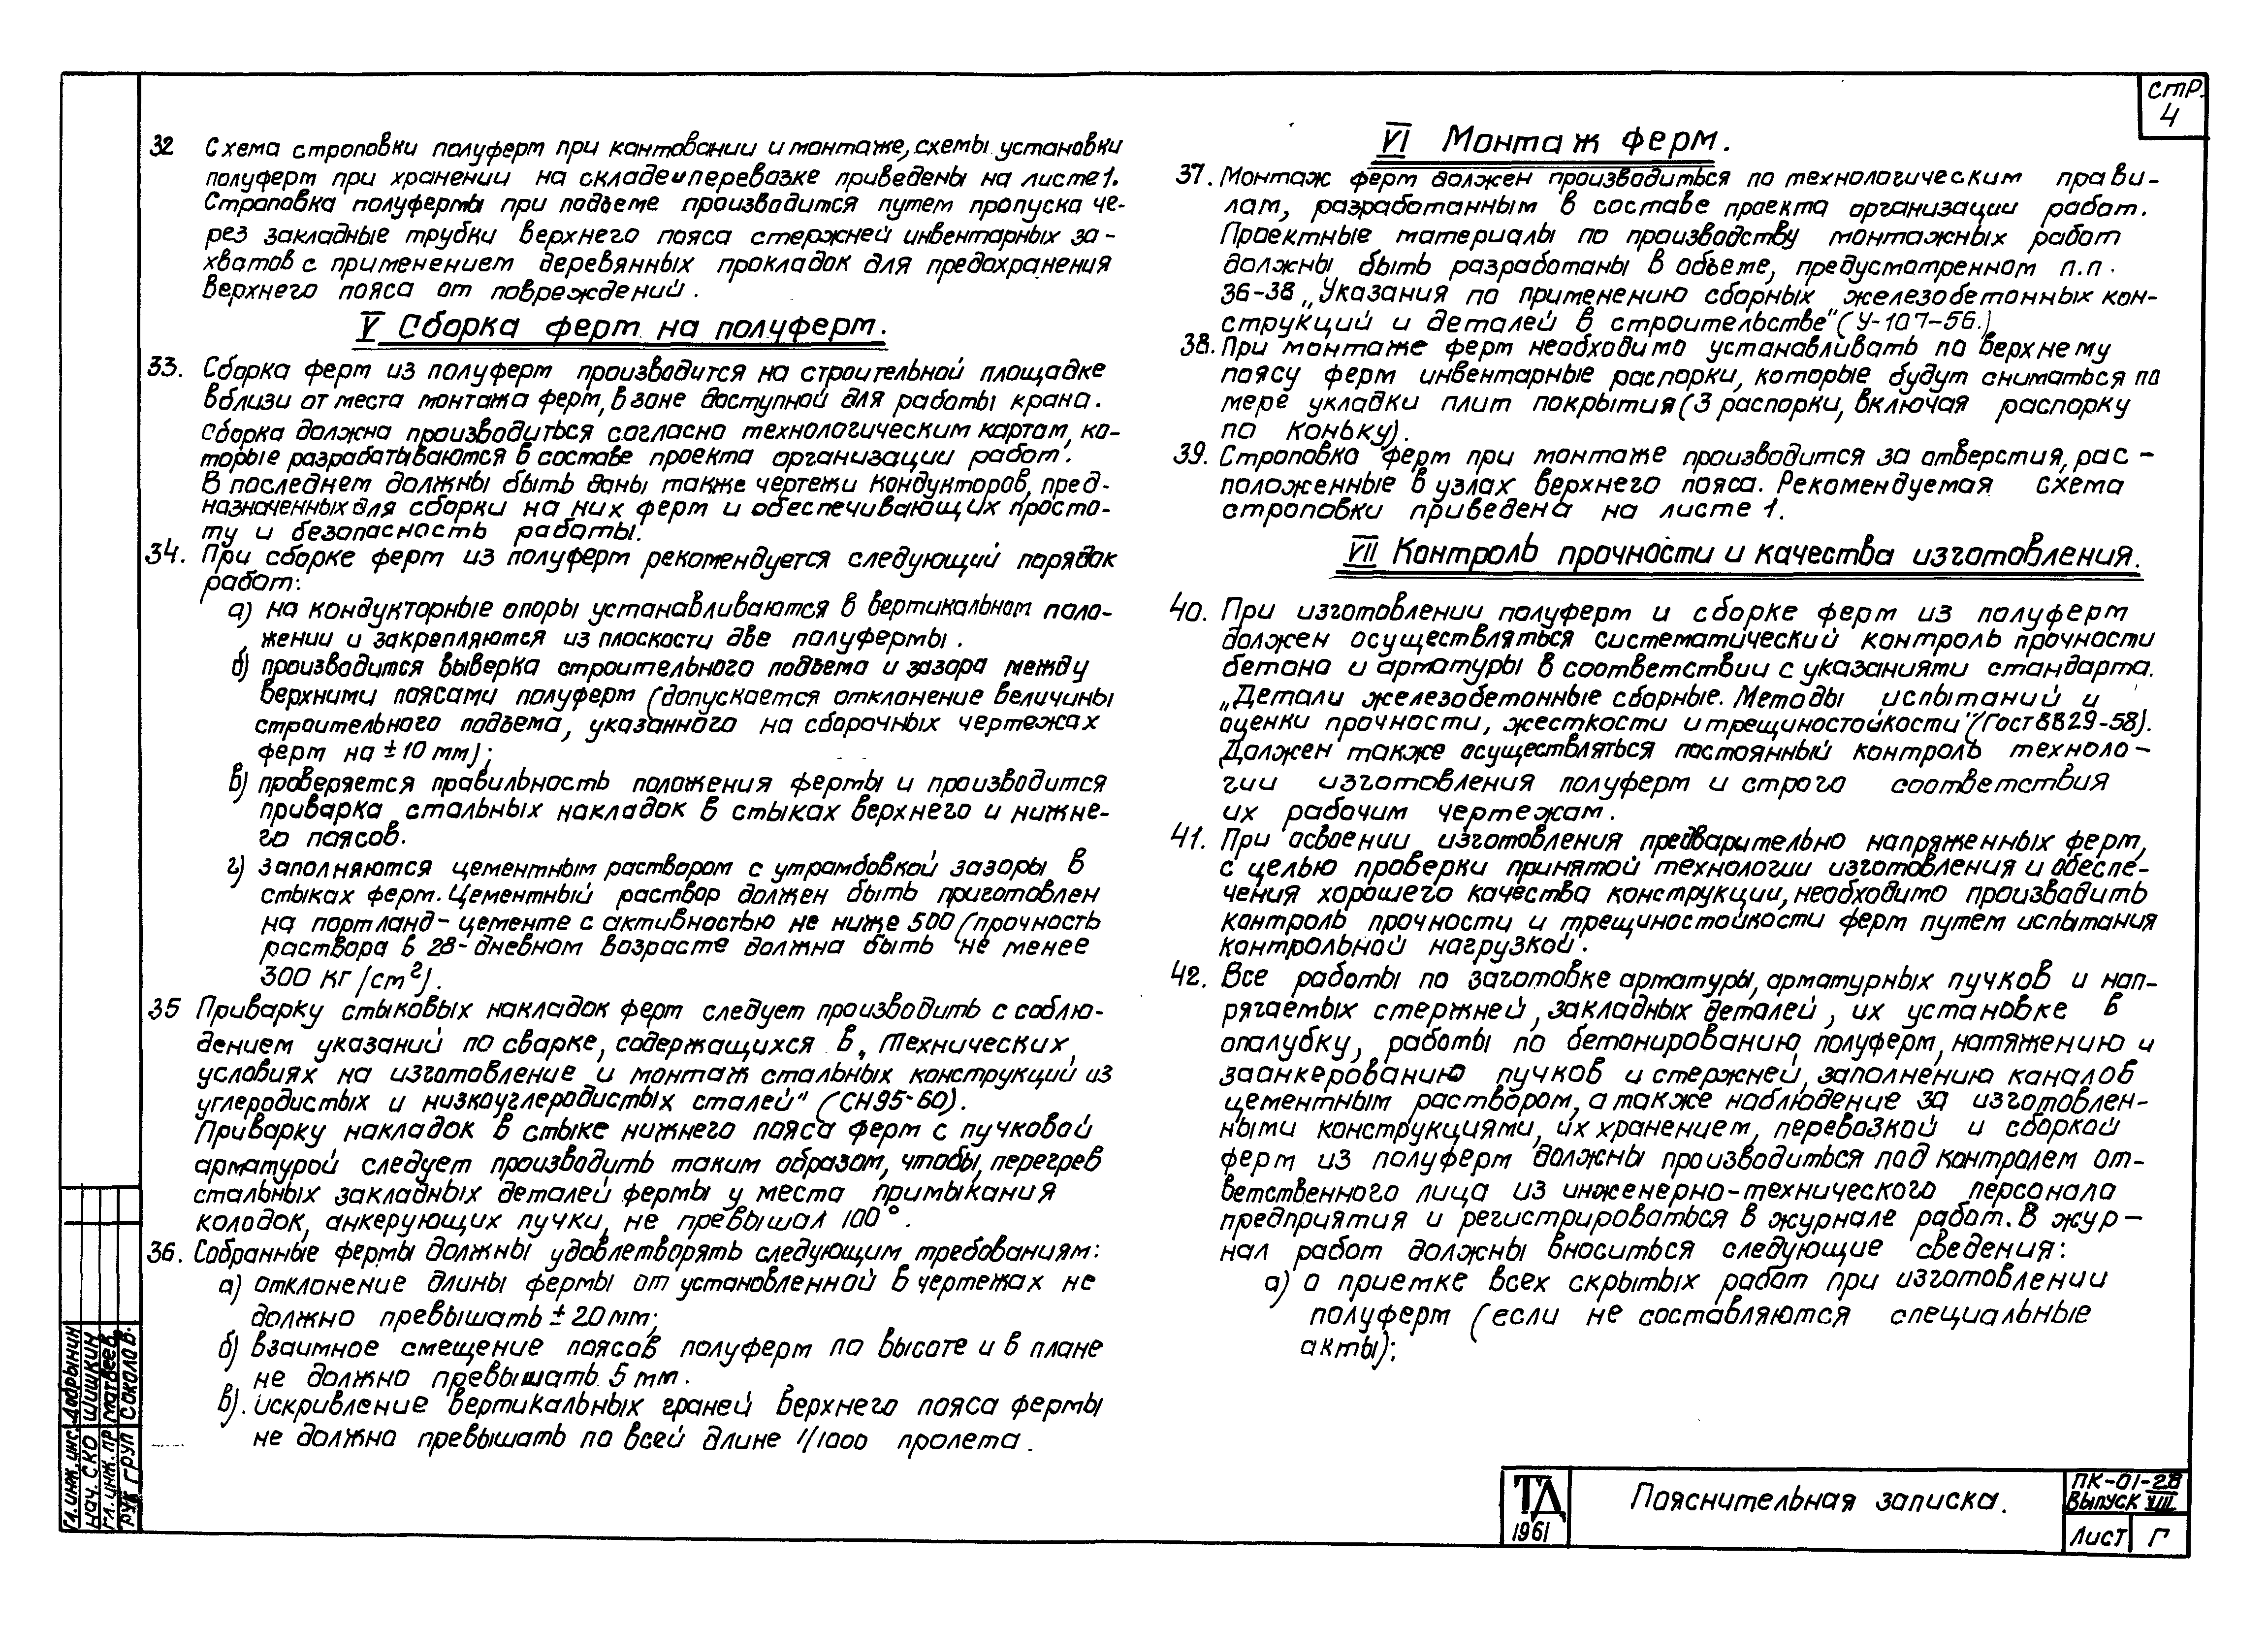 стр.
4
32 Схема строповки полуферм при кантовании и монтаже, схемы установки
полуферм при хранении на складе и перевозке приведены на листе 1.
Строповка полуфермы при подъеме производится путем пропуска че-
рез закладные трубки верхнего пояса стержней инвентарных за-
хватов с применением деревянных прокладок для предохранения
верхнего пояса от повреждений.
V Сборка ферм на полуферм.
33. Сборка ферм из полуферм производится на строительной площадке
вблизи от места монтажа ферм, в зоне доступной для работы крана.
Сборка должна производиться согласно технологическим картам, ко-
торые разрабатываются в составе проекта организации работ.
В последнем должны быть даны также чертежи кондукторов, пред-
назначенных для сборки на них ферм и обеспечивающих просто-
ту и безопасность работы.
34. При сборке ферм из полуферм рекомендуется следующий порядок
работ:
а) на кондукторные опоры устанавливаются в вертикальном поло-
жении и закрепляются из плоскости две полуфермы.
б) производится выверка строительного подъема и зазора между
верхними поясами полуферм (допускается отклонение величины
строительного подъема, указанного на сборочных чертежах
ферм на ±10 мм);
в) проверяется правильность положения фермы и производится
приварка стальных накладок в стыках верхнего и нижне-
го поясов.
г) заполняются цементным раствором с утрамбовкой зазоры в
стыках ферм. Цементный раствор должен быть приготовлен
на портланд-цементе с активностью не ниже 500 (прочность
раствора в 28-дневном возрасте должна быть не менее
300 кг/см²).
35 Приварку стыковых накладок ферм следует производить с соблю-
дением указаний по сварке, содержащихся в „Технических
условиях на изготовление и монтаж стальных конструкций из
углеродистых и низкоуглеродистых сталей" (СН95-60).
Приварку накладок в стыке нижнего пояса ферм с пучковой
арматурой следует производить таким образом, чтобы перегрев
стальных закладных деталей фермы у места примыкания
колодок, анкерующих пучки, не превышал 100°.
36. Собранные фермы должны удовлетворять следующим требованиям:
а) отклонение длины фермы от установленной в чертежах не
должно превышать ±20мм;
б) взаимное смещение поясов полуферм по высоте и в плане
не должно превышать 5 мм.
в). искривление вертикальных граней верхнего пояса фермы
не должно превышать по всей длине 1/1000 пролета.
VI Монтаж ферм.
37. Монтаж ферм должен производиться по технологическим прави-
лам, разработанным в составе проекта организации работ.
Проектные материалы по производству монтажных работ
должны быть разработаны в объеме, предусмотренном п.п.
36-38 „Указания по применению сборных железобетонных кон-
струкций и деталей в строительстве" (У-107-56.)
38. При монтаже ферм необходимо устанавливать по верхнему
поясу ферм инвентарные распорки, которые будут сниматься по
мере укладки плит покрытия (3 распорки, включая распорку
по коньку).
39. Строповка ферм при монтаже производится за отверстия, рас-
положенные в узлах верхнего пояса. Рекомендуемая схема
строповки приведена на листе 1.
VII Контроль прочности и качества изготовления.
40. При изготовлении полуферм и сборке ферм из полуферм
должен осуществляться систематический контроль прочности
бетона и арматуры в соответствии с указаниями стандарта.
„Детали железобетонные сборные. Методы испытаний и
оценки прочности, жесткости и трещиностойкости" (Гост 8829-58).
Должен также осуществляться постоянный контроль техноло-
гии изготовления полуферм и строго соответствия
их рабочим чертежам.
41. При освоении изготовления предварительно напряженных ферм,
с целью проверки принятой технологии изготовления и обеспе-
чения хорошего качества конструкции, необходимо производить
контроль прочности и трещиностойкости ферм путем испытания
контрольной нагрузкой.
42. Все работы по заготовке арматуры, арматурных пучков и нап-
рягаемых стержней, закладных деталей, их установке в
опалубку, работы по бетонированию полуферм, натяжению и
заанкерованию пучков и стержней, заполнению каналов
цементным раствором, а также наблюдение за изготовлен-
ными конструкциями, их хранением, перевозкой и сборкой
ферм из полуферм должны производиться под контролем от-
ветственного лица из инженерно-технического персонала
предприятия и регистрироваться в журнале работ. В жур-
нал работ должны вноситься следующие сведения:
а) о приемке всех скрытых работ при изготовлении
полуферм (если не составляются специальные
акты);
Гл. инж. инс. Добрынин
Нач. СКО Шишкин
Гл. инж. пр. Матвеев
Рук груп Соколов.
ТД
1961
Пояснительная записка.
ПК-01-28
Выпуск VIII
Лист Г